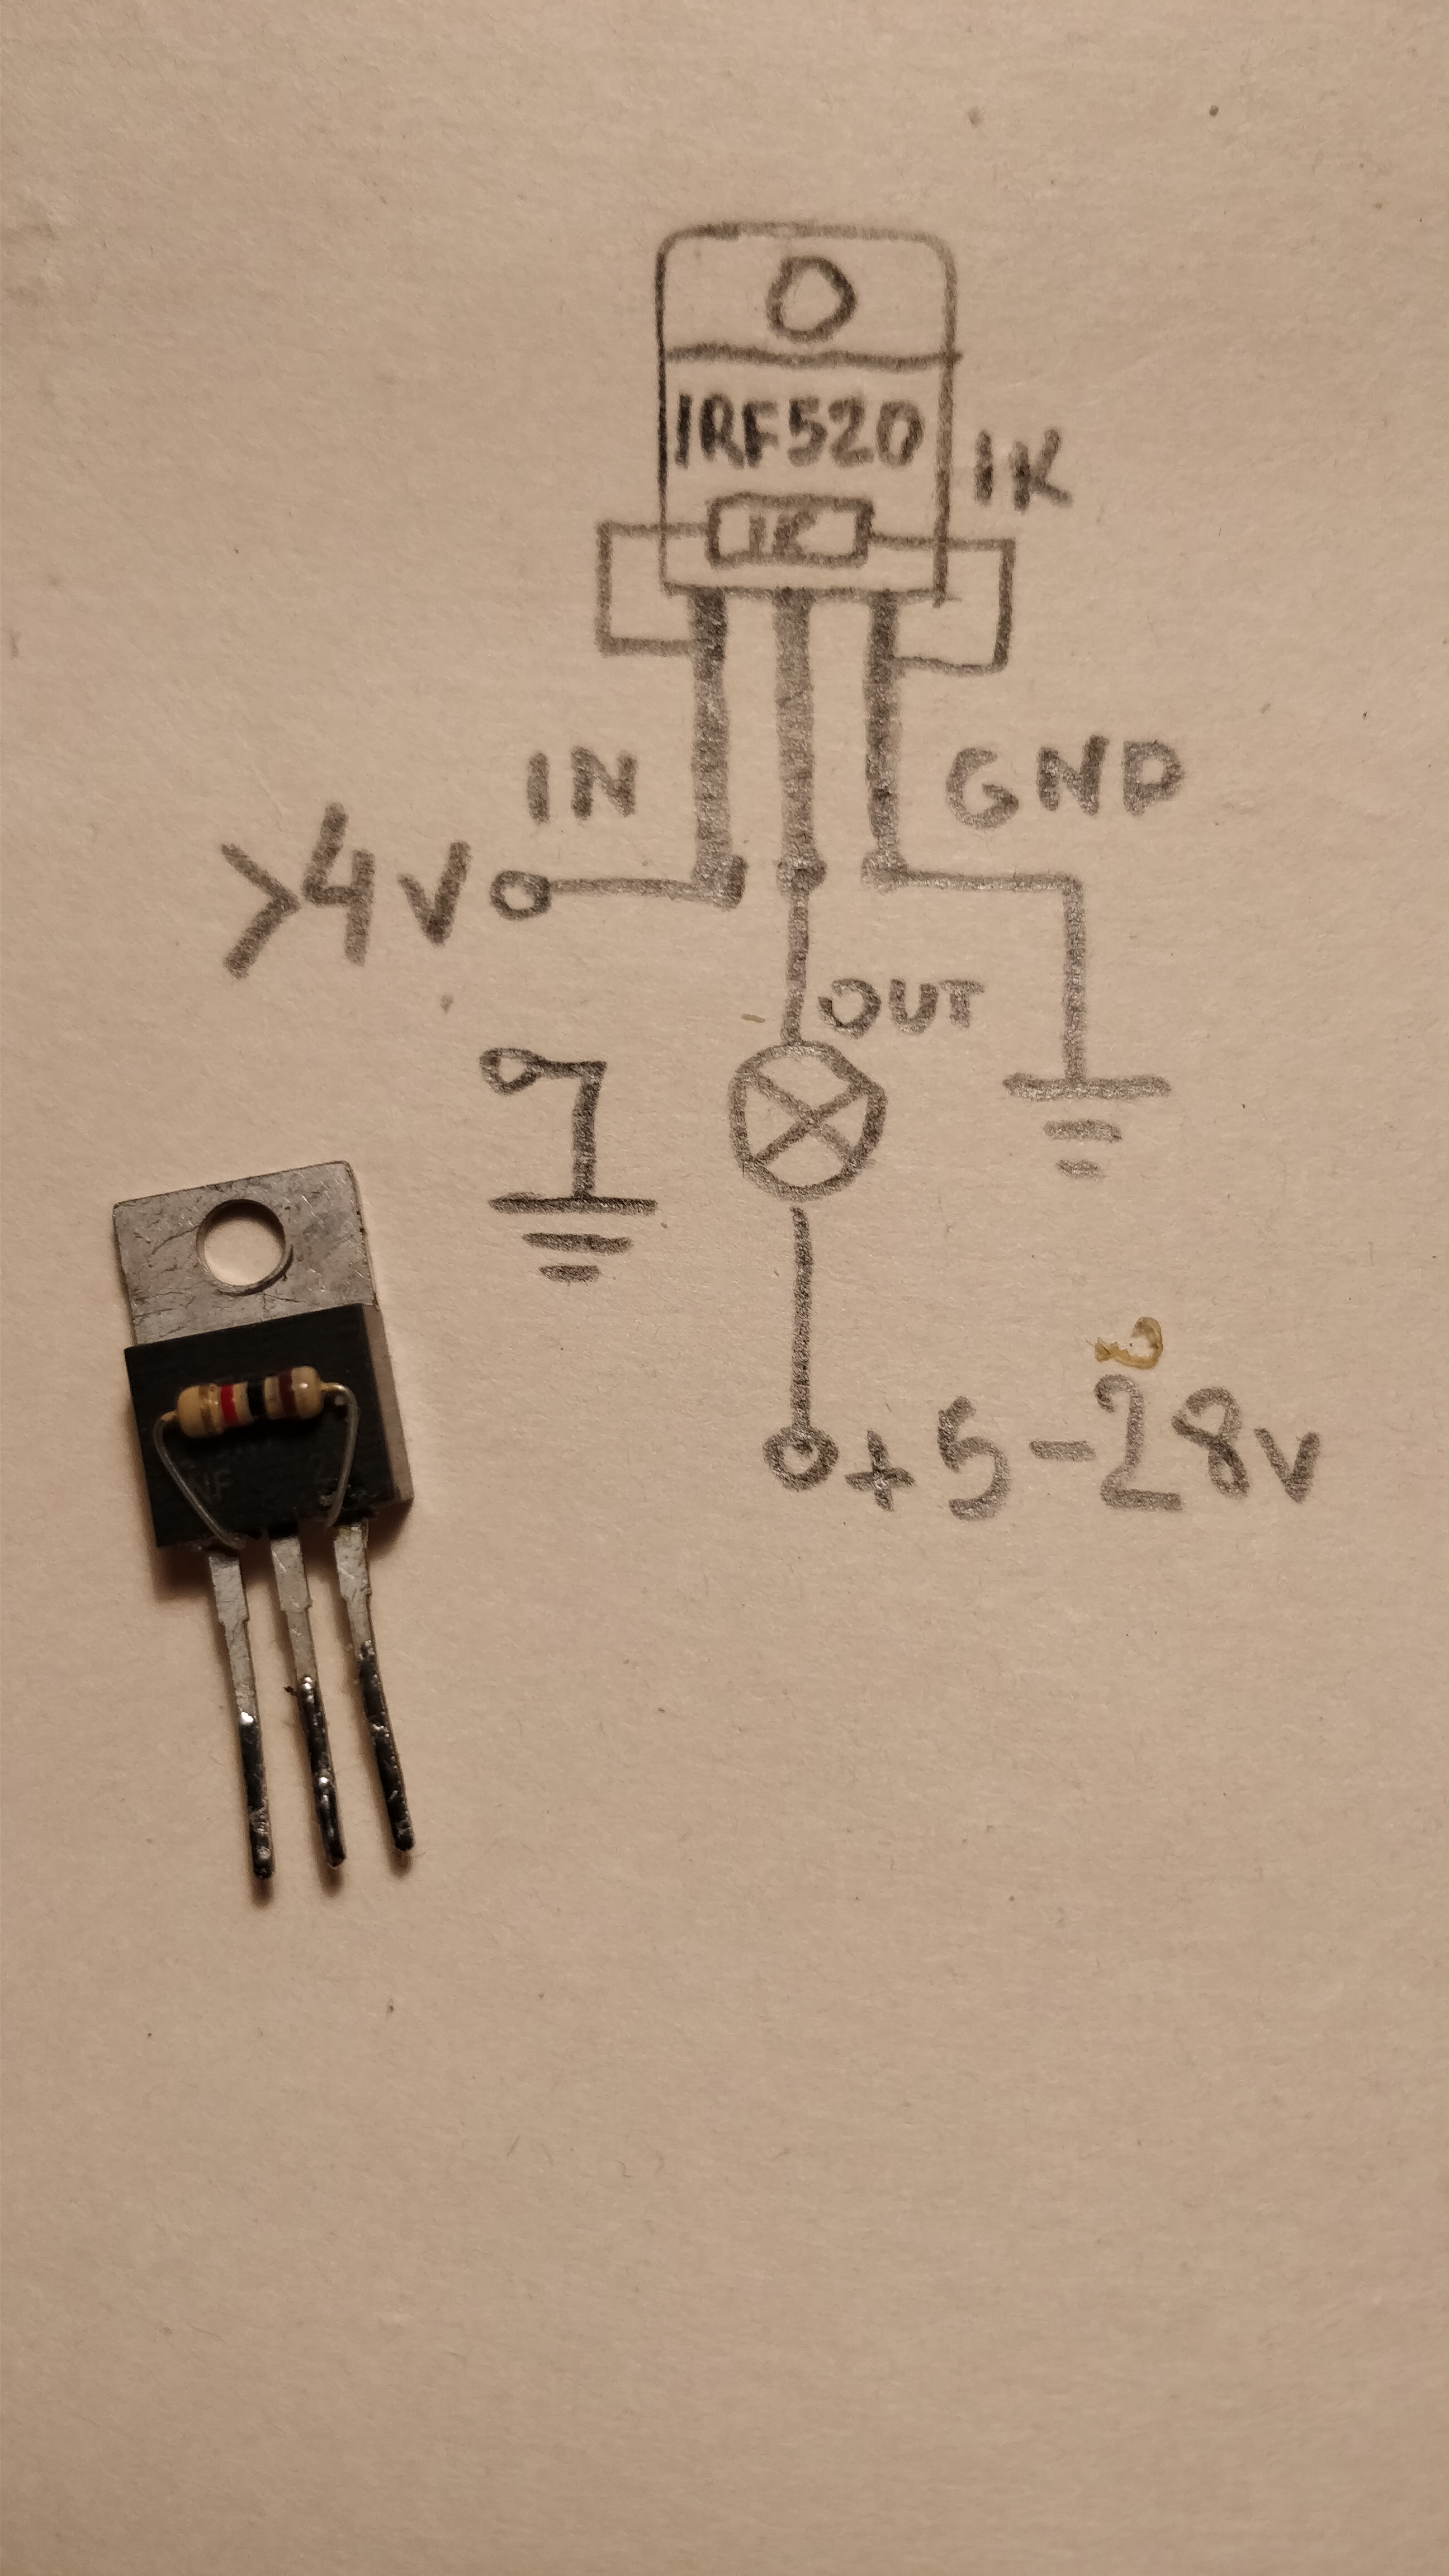 IRF520
1K
1K
IN
GND
>4V
OUT
+5-28V